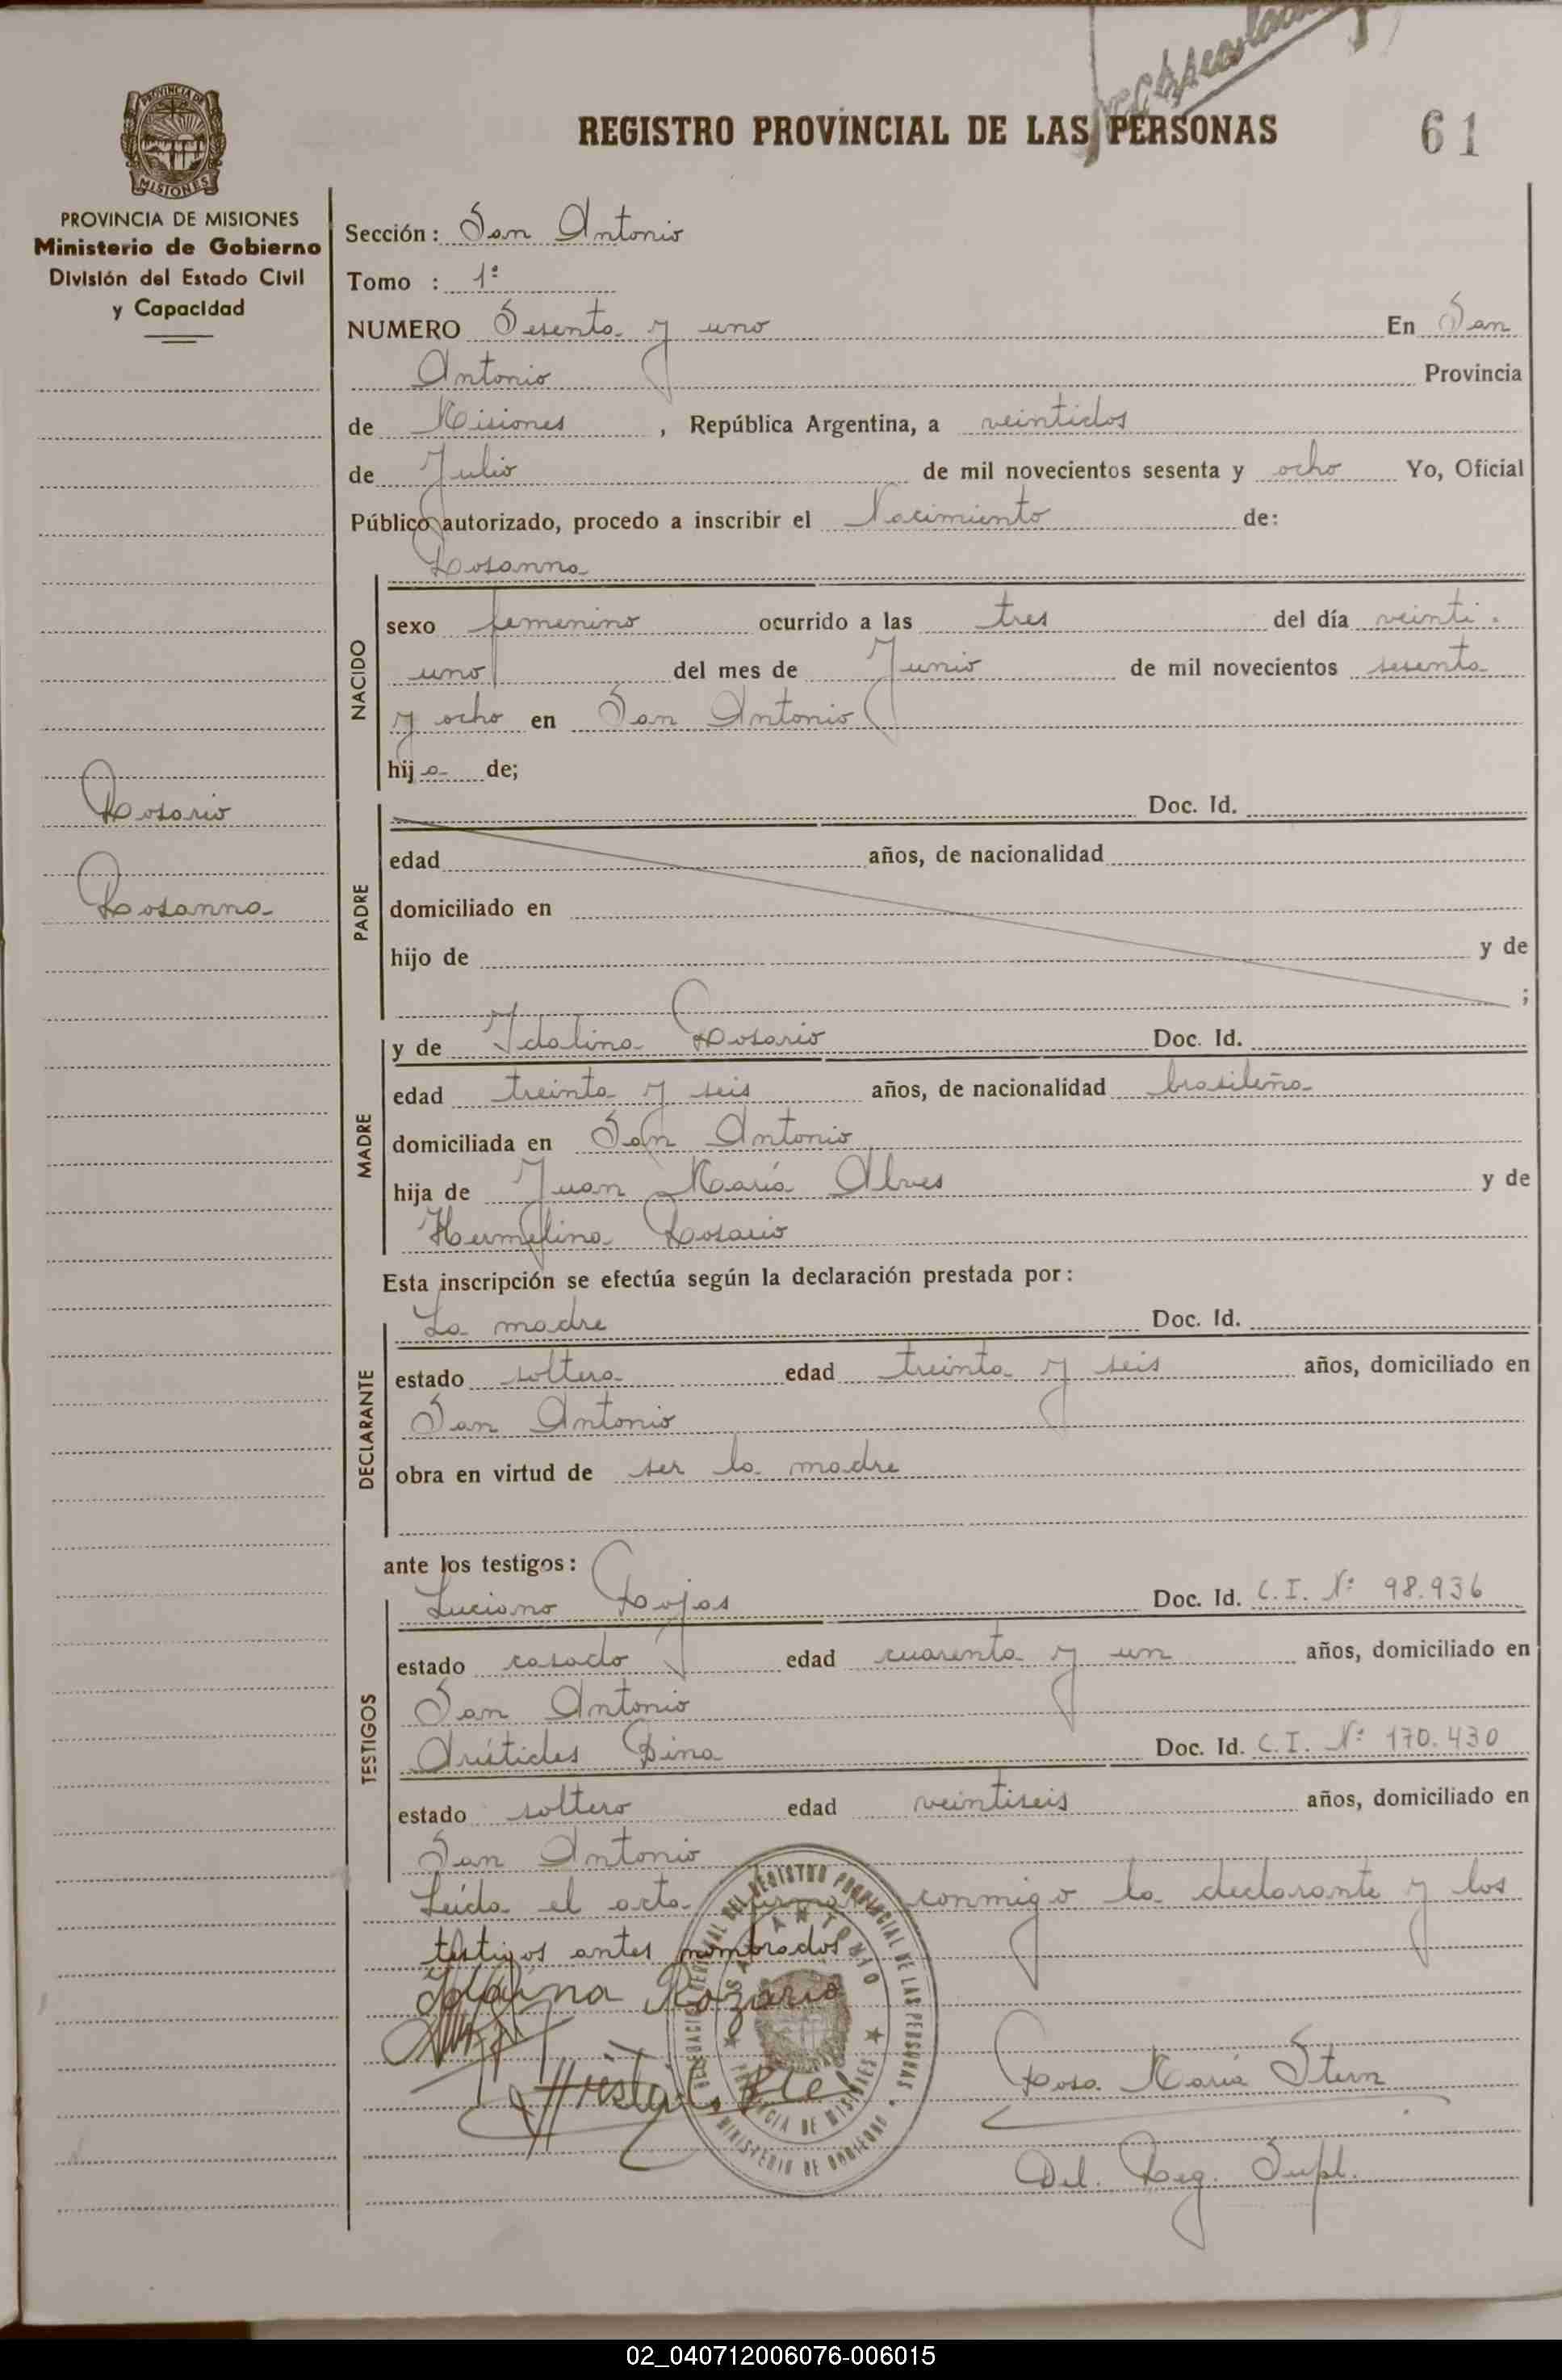 REGISTRO PROVINCIAL DE LAS PERSONAS
61
PROVINCIA DE MISIONES
MISIONES
PROVINCIA DE MISIONES
Ministerio de Gobierno
División del Estado Civil
y Capacidad
Rosario
Rosanna
Sección: San Antonio
Tomo : 1º
NUMERO Sesenta y uno En San
Antonio Provincia
de Misiones , República Argentina, a veintidos
de Julio de mil novecientos sesenta y ocho Yo, Oficial
Público autorizado, procedo a inscribir el Nacimiento de:
Rosanna
NACIDO
sexo femenino ocurrido a las tres del día veinti-
uno del mes de Junio de mil novecientos sesenta
y ocho en San Antonio
hija de;
PADRE
Doc. Id.
edad años, de nacionalidad
domiciliado en
hijo de y de
;
MADRE
y de Idalina Rosario Doc. Id.
edad treinta y seis años, de nacionalidad brasileña
domiciliada en San Antonio
hija de Juan María Alves y de
Hermelina Rosario
Esta inscripción se efectúa según la declaración prestada por:
DECLARANTE
La madre Doc. Id.
estado soltera edad treinta y seis años, domiciliado en
San Antonio
obra en virtud de ser la madre
ante los testigos:
TESTIGOS
Luciano Rojas Doc. Id. C.I. Nº 98.936
estado casado edad cuarenta y un años, domiciliado en
San Antonio
Arístides Pina Doc. Id. C.I. Nº 170.430
estado soltero edad veintiseis años, domiciliado en
San Antonio
Leída el acta firman conmigo la declarante y los
testigos antes nombrados
Idalina Rozario
Rosa María Stern
Del. Reg. Supl.
DELEGACION SECCIONAL DEL REGISTRO PROVINCIAL DE LAS PERSONAS
SAN ANTONIO
PROVINCIA DE MISIONES
MINISTERIO DE GOBIERNO
02_040712006076-006015